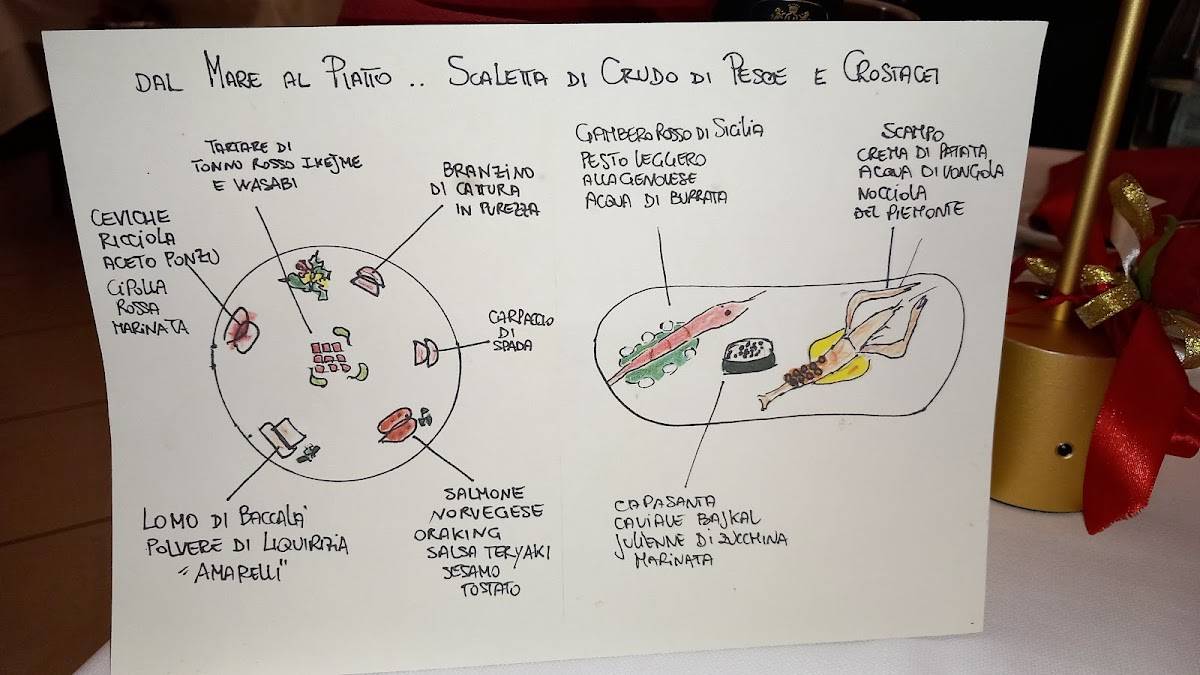 DAL MARE AL PIATTO .. SCALETTA DI CRUDO DI PESCE E CROSTACEI
TARTARE DI
TONNO ROSSO IKEJME
E WASABI
BRANZINO
DI CATTURA
IN PUREZZA
CEVICHE
RICCIOLA
ACETO PONZU
CIPOLLA
ROSSA
MARINATA
CARPACCIO
DI
SPADA
LOMO DI BACCALA'
POLVERE DI LIQUIRIZIA
"AMARELLI"
SALMONE
NORVEGESE
ORAKING
SALSA TERYAKI
SESAMO
TOSTATO
GAMBERO ROSSO DI SICILIA
PESTO LEGGERO
ALLA GENOVESE
ACQUA DI BURRATA
SCAMPO
CREMA DI PATATA
ACQUA DI VONGOLA
NOCCIOLA
DEL PIEMONTE
CAPASANTA
CAVIALE BAJKAL
JULIENNE DI ZUCCHINA
MARINATA